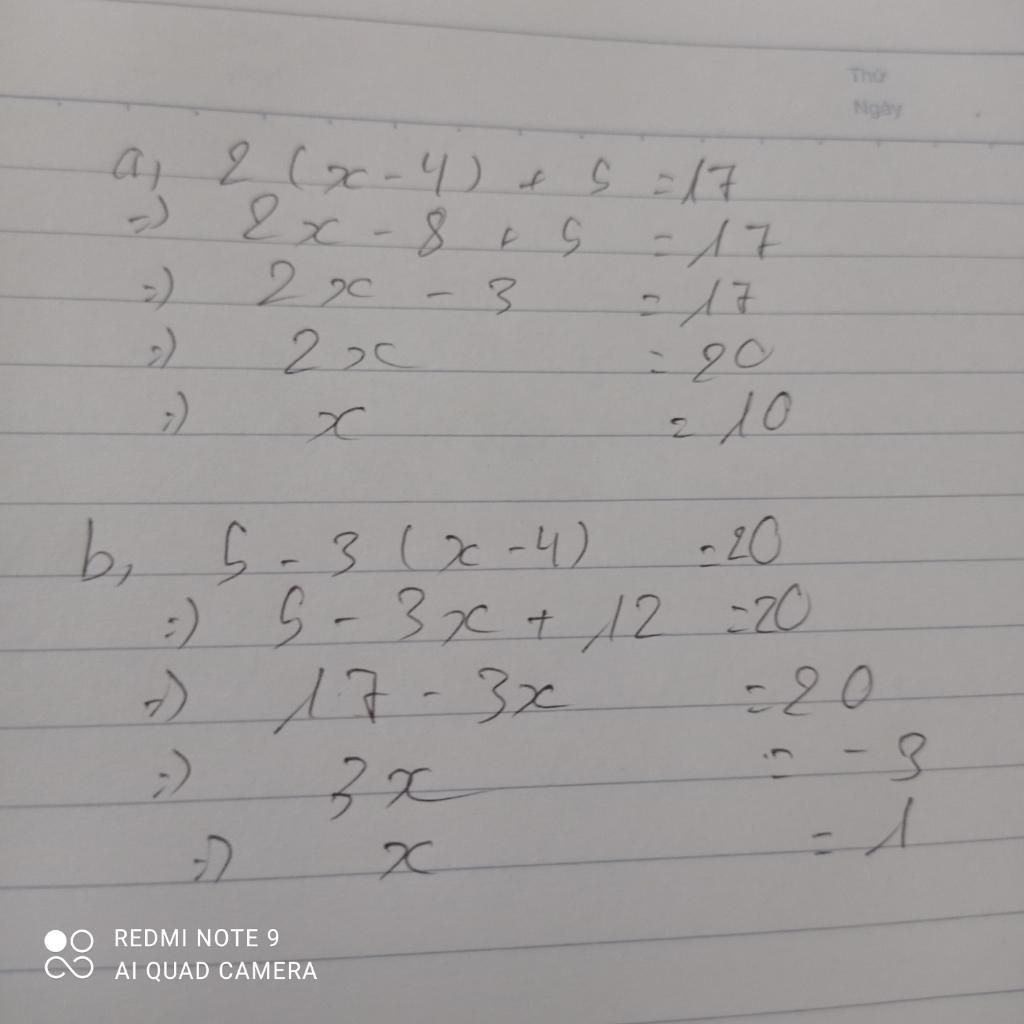 Thứ
Ngày
a, 2 (x - 4) + 5 = 17
=> 2x - 8 + 5 = 17
=> 2x - 3 = 17
=> 2x = 20
=> x = 10
b, 5 - 3 (x - 4) = 20
=> 5 - 3x + 12 = 20
=> 17 - 3x = 20
=> 3x = - 3
=> x = 1
REDMI NOTE 9
AI QUAD CAMERA